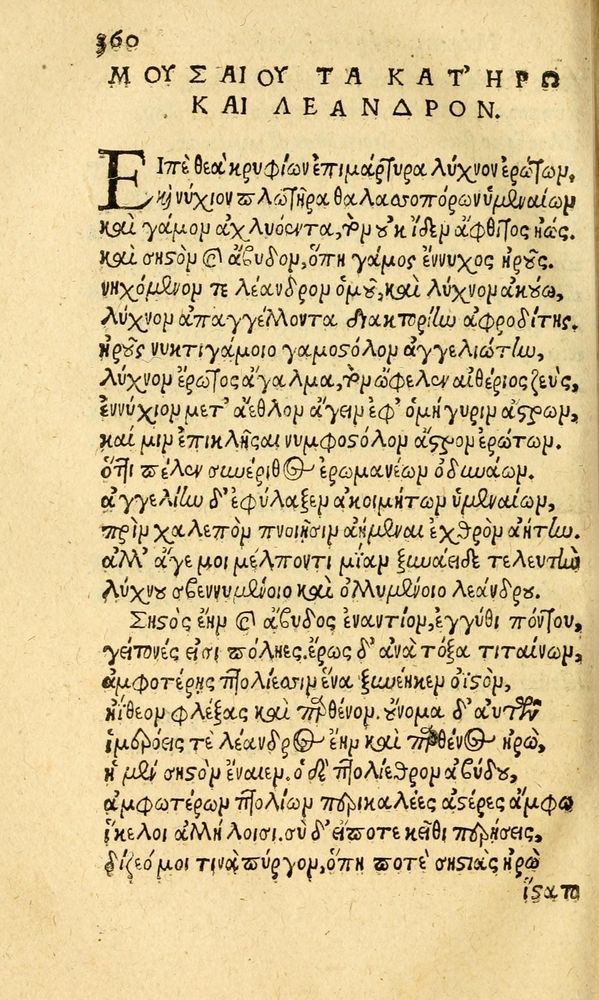 360
ΜΟΥΣΑΙΟΥ ΤΑ ΚΑΤ' ΗΡΩ
ΚΑΙ ΛΕΑΝΔΡΟΝ.
Εἰπὲ θεὰ κρυφίων ἐπιμάρτυρα λύχνον ἐρώτων,
καὶ νύχιον πλωτῆρα θαλασσοπόρων ὑμεναίων
καὶ γάμον ἀχλυόεντα, τὸν οὐκ ἴδεν ἄφθιτος ἠώς.
καὶ σηστὸν καὶ ἄβυδον, ὅπη γάμος ἔννυχος ἡροῦς.
νηχόμενον τε λέανδρον ὁμοῦ, καὶ λύχνον ἀκούω,
λύχνον ἀπαγγέλλοντα διακτορίην ἀφροδίτης.
ἡροῦς νυκτιγάμοιο γαμοστόλον ἀγγελιώτην,
λύχνον ἔρωτος ἄγαλμα, τὸν ὤφελεν αἰθέριος ζεὺς,
ἐννύχιον μετ' ἄεθλον ἄγειν ἐφ' ὁμήγυριν ἄστρων,
καί μιν ἐπικλῆσαι νυμφοστόλον ἄστρον ἐρώτων.
ὅττι πέλεν συνέριθος ἐρωμανέων ὀδυνάων.
ἀγγελίην δ' ἐφύλαξεν ἀκοιμήτων ὑμεναίων,
πρὶν χαλεπὸν πνοιῇσιν ἀήμεναι ἐχθρὸν ἀήτην.
ἀλλ' ἄγε μοι μέλποντι μίαν ξυνάειδε τελευτὴν
λύχνου σβεννυμένοιο καὶ ὀλλυμένοιο λεάνδρου.
Σηστὸς ἔην καὶ ἄβυδος ἐναντίον, ἐγγύθι πόντου,
γείτονές εἰσι πόληες. ἔρως δ' ἀνὰ τόξα τιταίνων,
ἀμφοτέρῃς πτολίεσσιν ἕνα ξυνέηκεν ὀϊστὸν,
ἠΐθεον φλέξας καὶ παρθένον. οὔνομα δ' αὐτῶν
ἱμερόεις τὲ λέανδρος ἔην καὶ παρθένος ἡρὼ,
ἡ μὲν σηστὸν ἔναιεν. ὁ δὲ πτολίεθρον ἀβύδου,
ἀμφωτέρων πτολίων περικαλέες ἀστέρες ἄμφω
ἴκελοι ἀλλήλοισι. σὺ δ' εἴποτε κεῖθι περήσεις,
δίζεό μοι τινὰ πύργον, ὅπη ποτὲ σηστιὰς ἡρὼ
ἵστατο